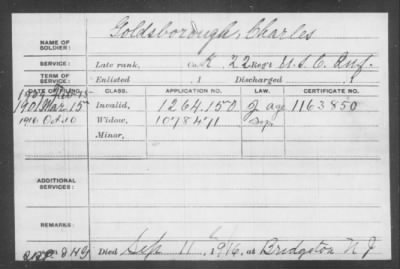 Goldsborough, Charles
NAME OF SOLDIER:
SERVICE: Late rank, Co. K, 22 Reg't U.S.C. Inf.
TERM OF SERVICE: Enlisted , 1 Discharged , 1
DATE OF FILING. CLASS. APPLICATION NO. LAW. CERTIFICATE NO.
1901 Mar 15 Invalid, 1264.150 age 1163850
1916 Oct. 10 Widow, 1078471
Minor,
ADDITIONAL SERVICES:
REMARKS:
Died Sep 11, 1916, at Bridgeton N J